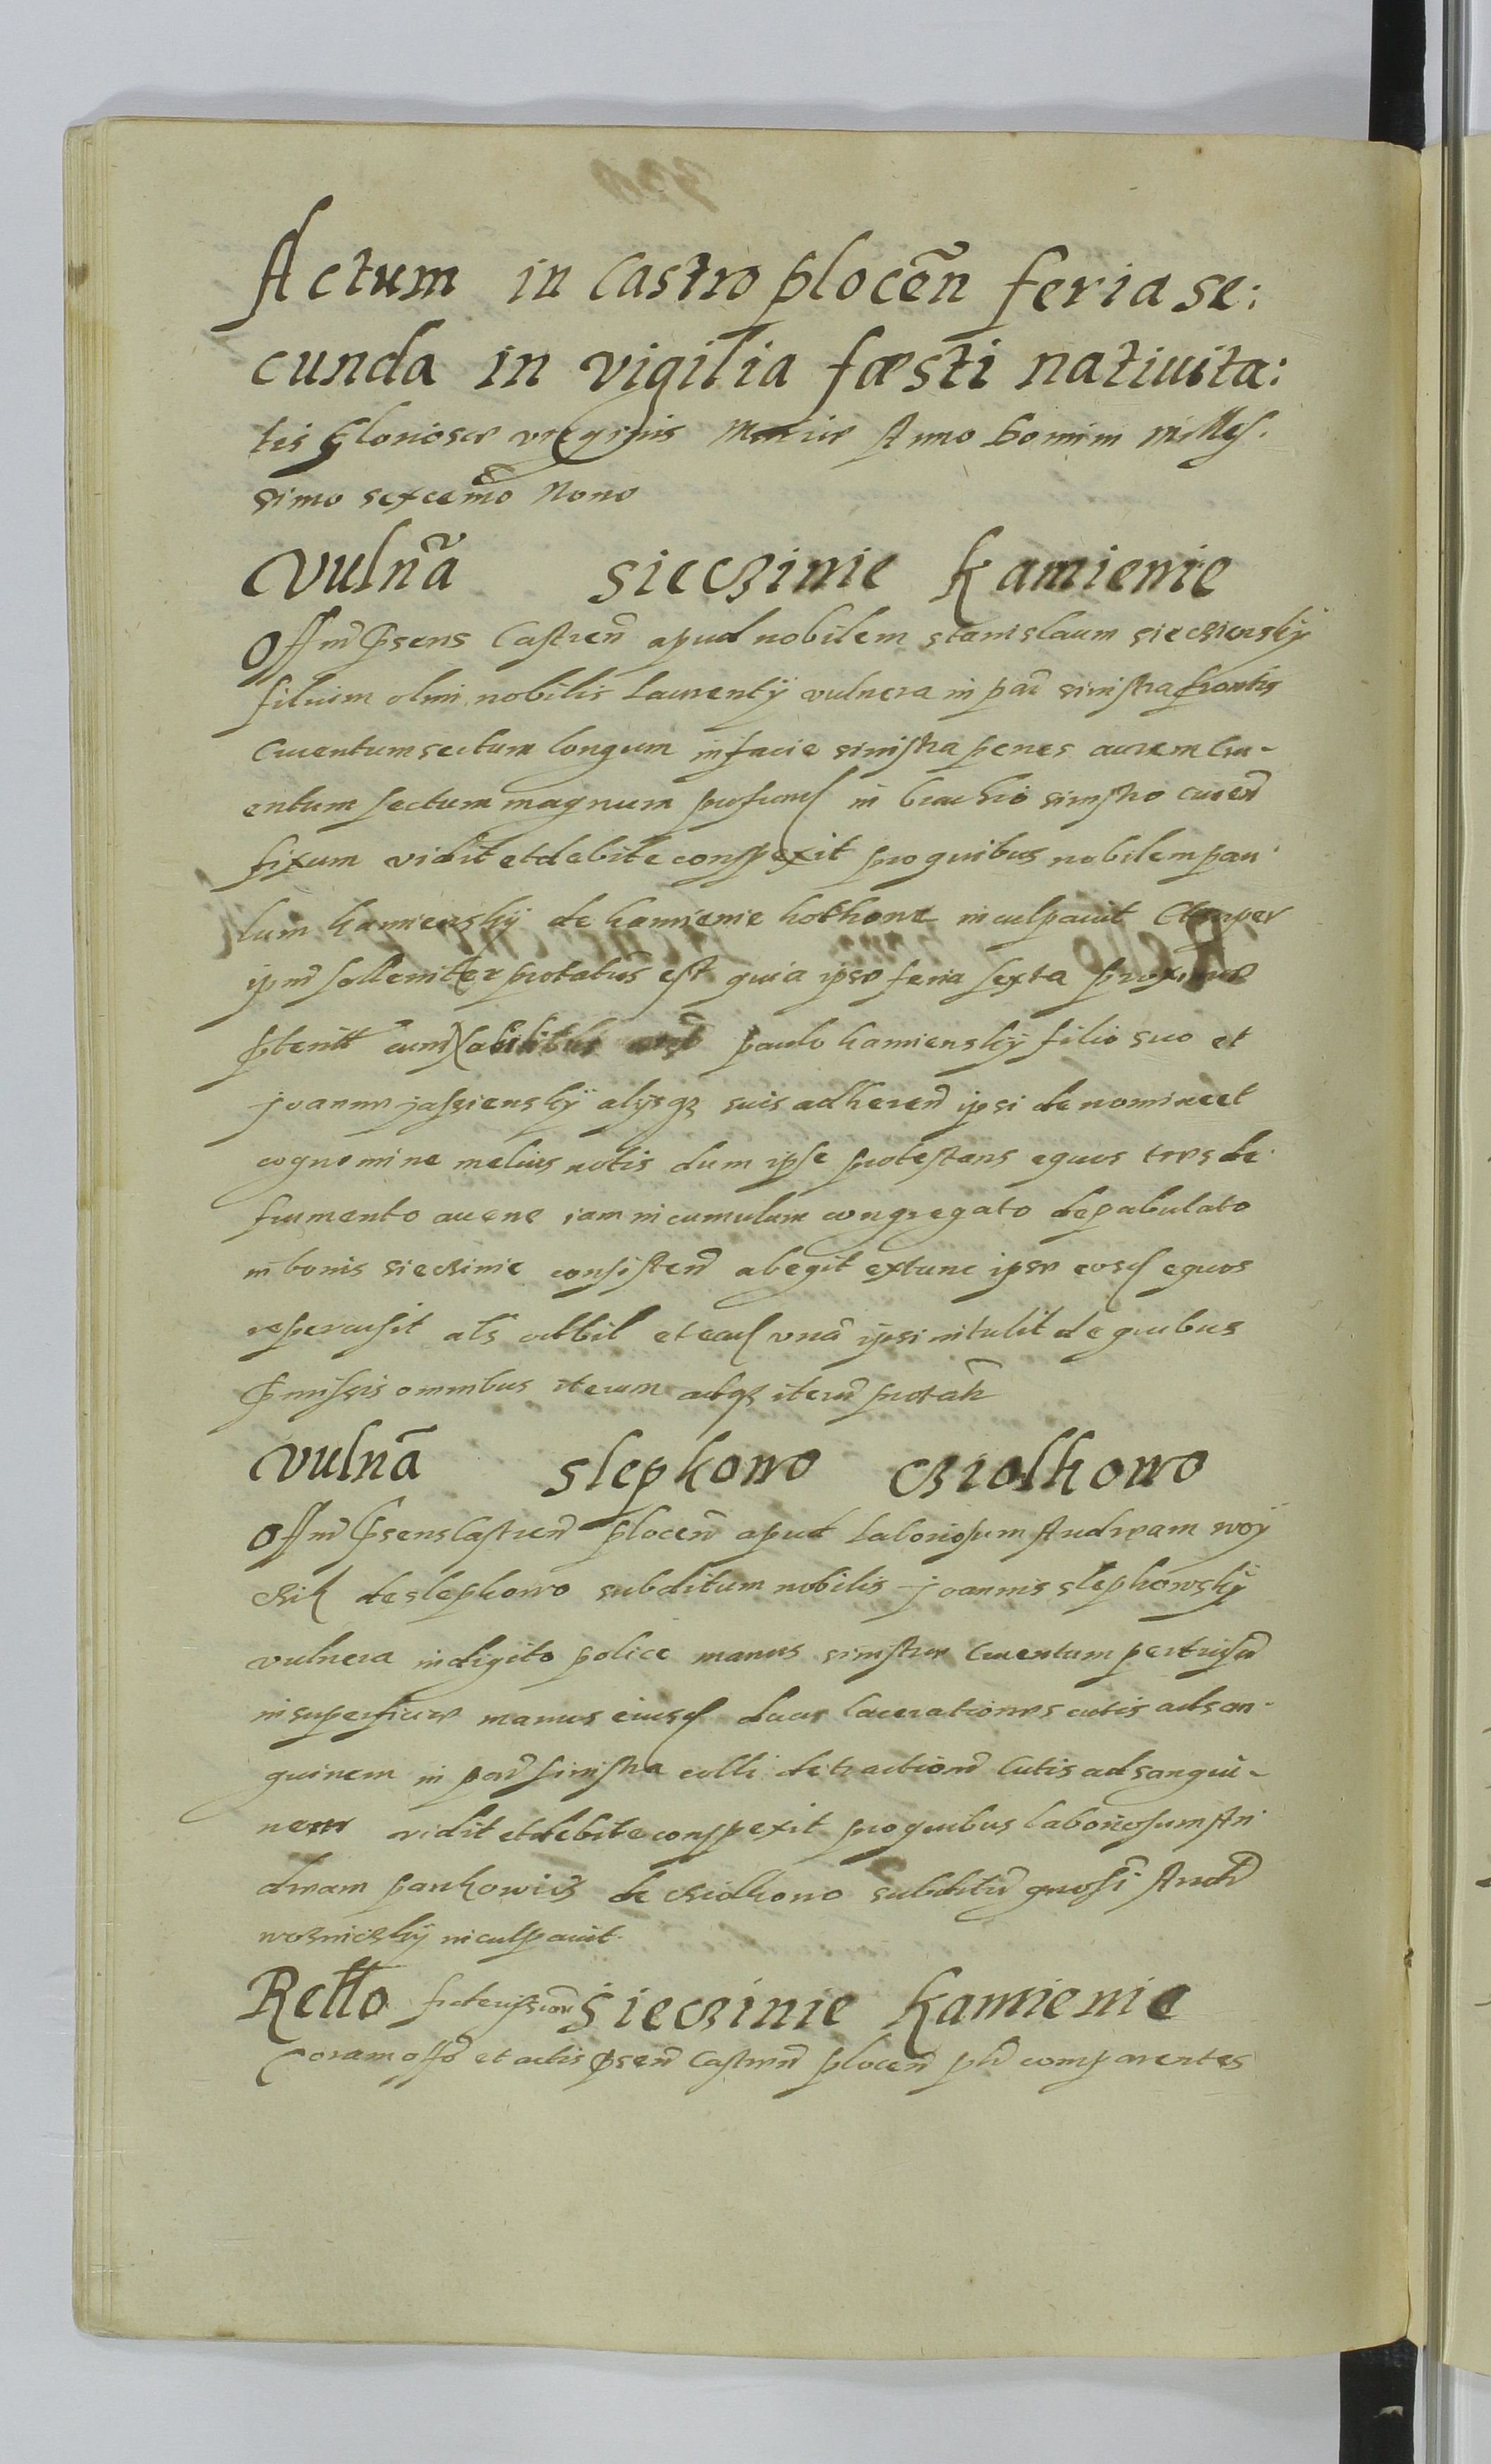 Actum in Castro plocen̄ feria se:
cunda in vigilia fæsti natiuita:
tis Gloriosæ virginis Mariæ Anno Domini Milles.
simo sexcen̄mo Nono
Vulnr̃a sieczinie Kamienie
Offm̄ p̄sens Castren̄ apud nobilem stanislaum siecziensky
filium olim nobilis Laurentÿ vulnera in par̄ sinistra frontis
Cruentum sectum longum in facie sinistra penes aurem Cru-
entum sectum magnum profund in brachio sinistro cruen̄
fixum vidit et debite conspexit pro quibus nobilem pau
lum kamiensky de kamienie kothowe inculpauit Et super
ipm̄ solleniter protatus est quia ipse feria sexta proxime
pterit̄ cum paulo kamiensky filio suo et
joanne jasziensky alijsqz suis adheren̄ ipsi de nomine et
cognomine melius notis dum ipse protestans equos tres de
frumento auene iam in cumulum congregato depabulato
in bonis sieczinie consisten̄ abegit extunc ipse eosd equos
repercusit als odbil et ead vna ipsi intulit de quibus
p̄missis omnibus iterum atqz iterū protat̄
Vulnr̃a slepkowo cziolkowo
Offm̄ p̄sens Castren̄ plocen̄ apud Laboriosum Andream woÿ
czik de slepkowo subditum nobilis joannis slepkowskÿ
vulnera in digito police manus sinistræ Cruentum pertusū
in superficie manus eiusd duas lacerationes cutis ad san-
guinem in par̄ sinistra colli detractionē Cutis ad sangui-
nem vidit et debite conspexit pro quibus laboriosum An
dream pankowicz de cziolkowo subditū gnosi Andr̄
woznickÿ inculpauit
Retto sieczinie Kamienie
Coram offō et actis p̄sen̄ Castren̄ plocen̄ plr̄ comparentes